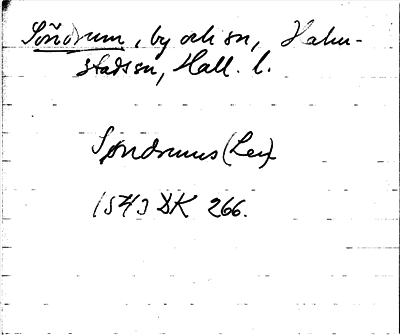 Söndrum, by och sn, Halm-
stads sn, Hall. l.
Søndrums (Len)
1543 DK 266.